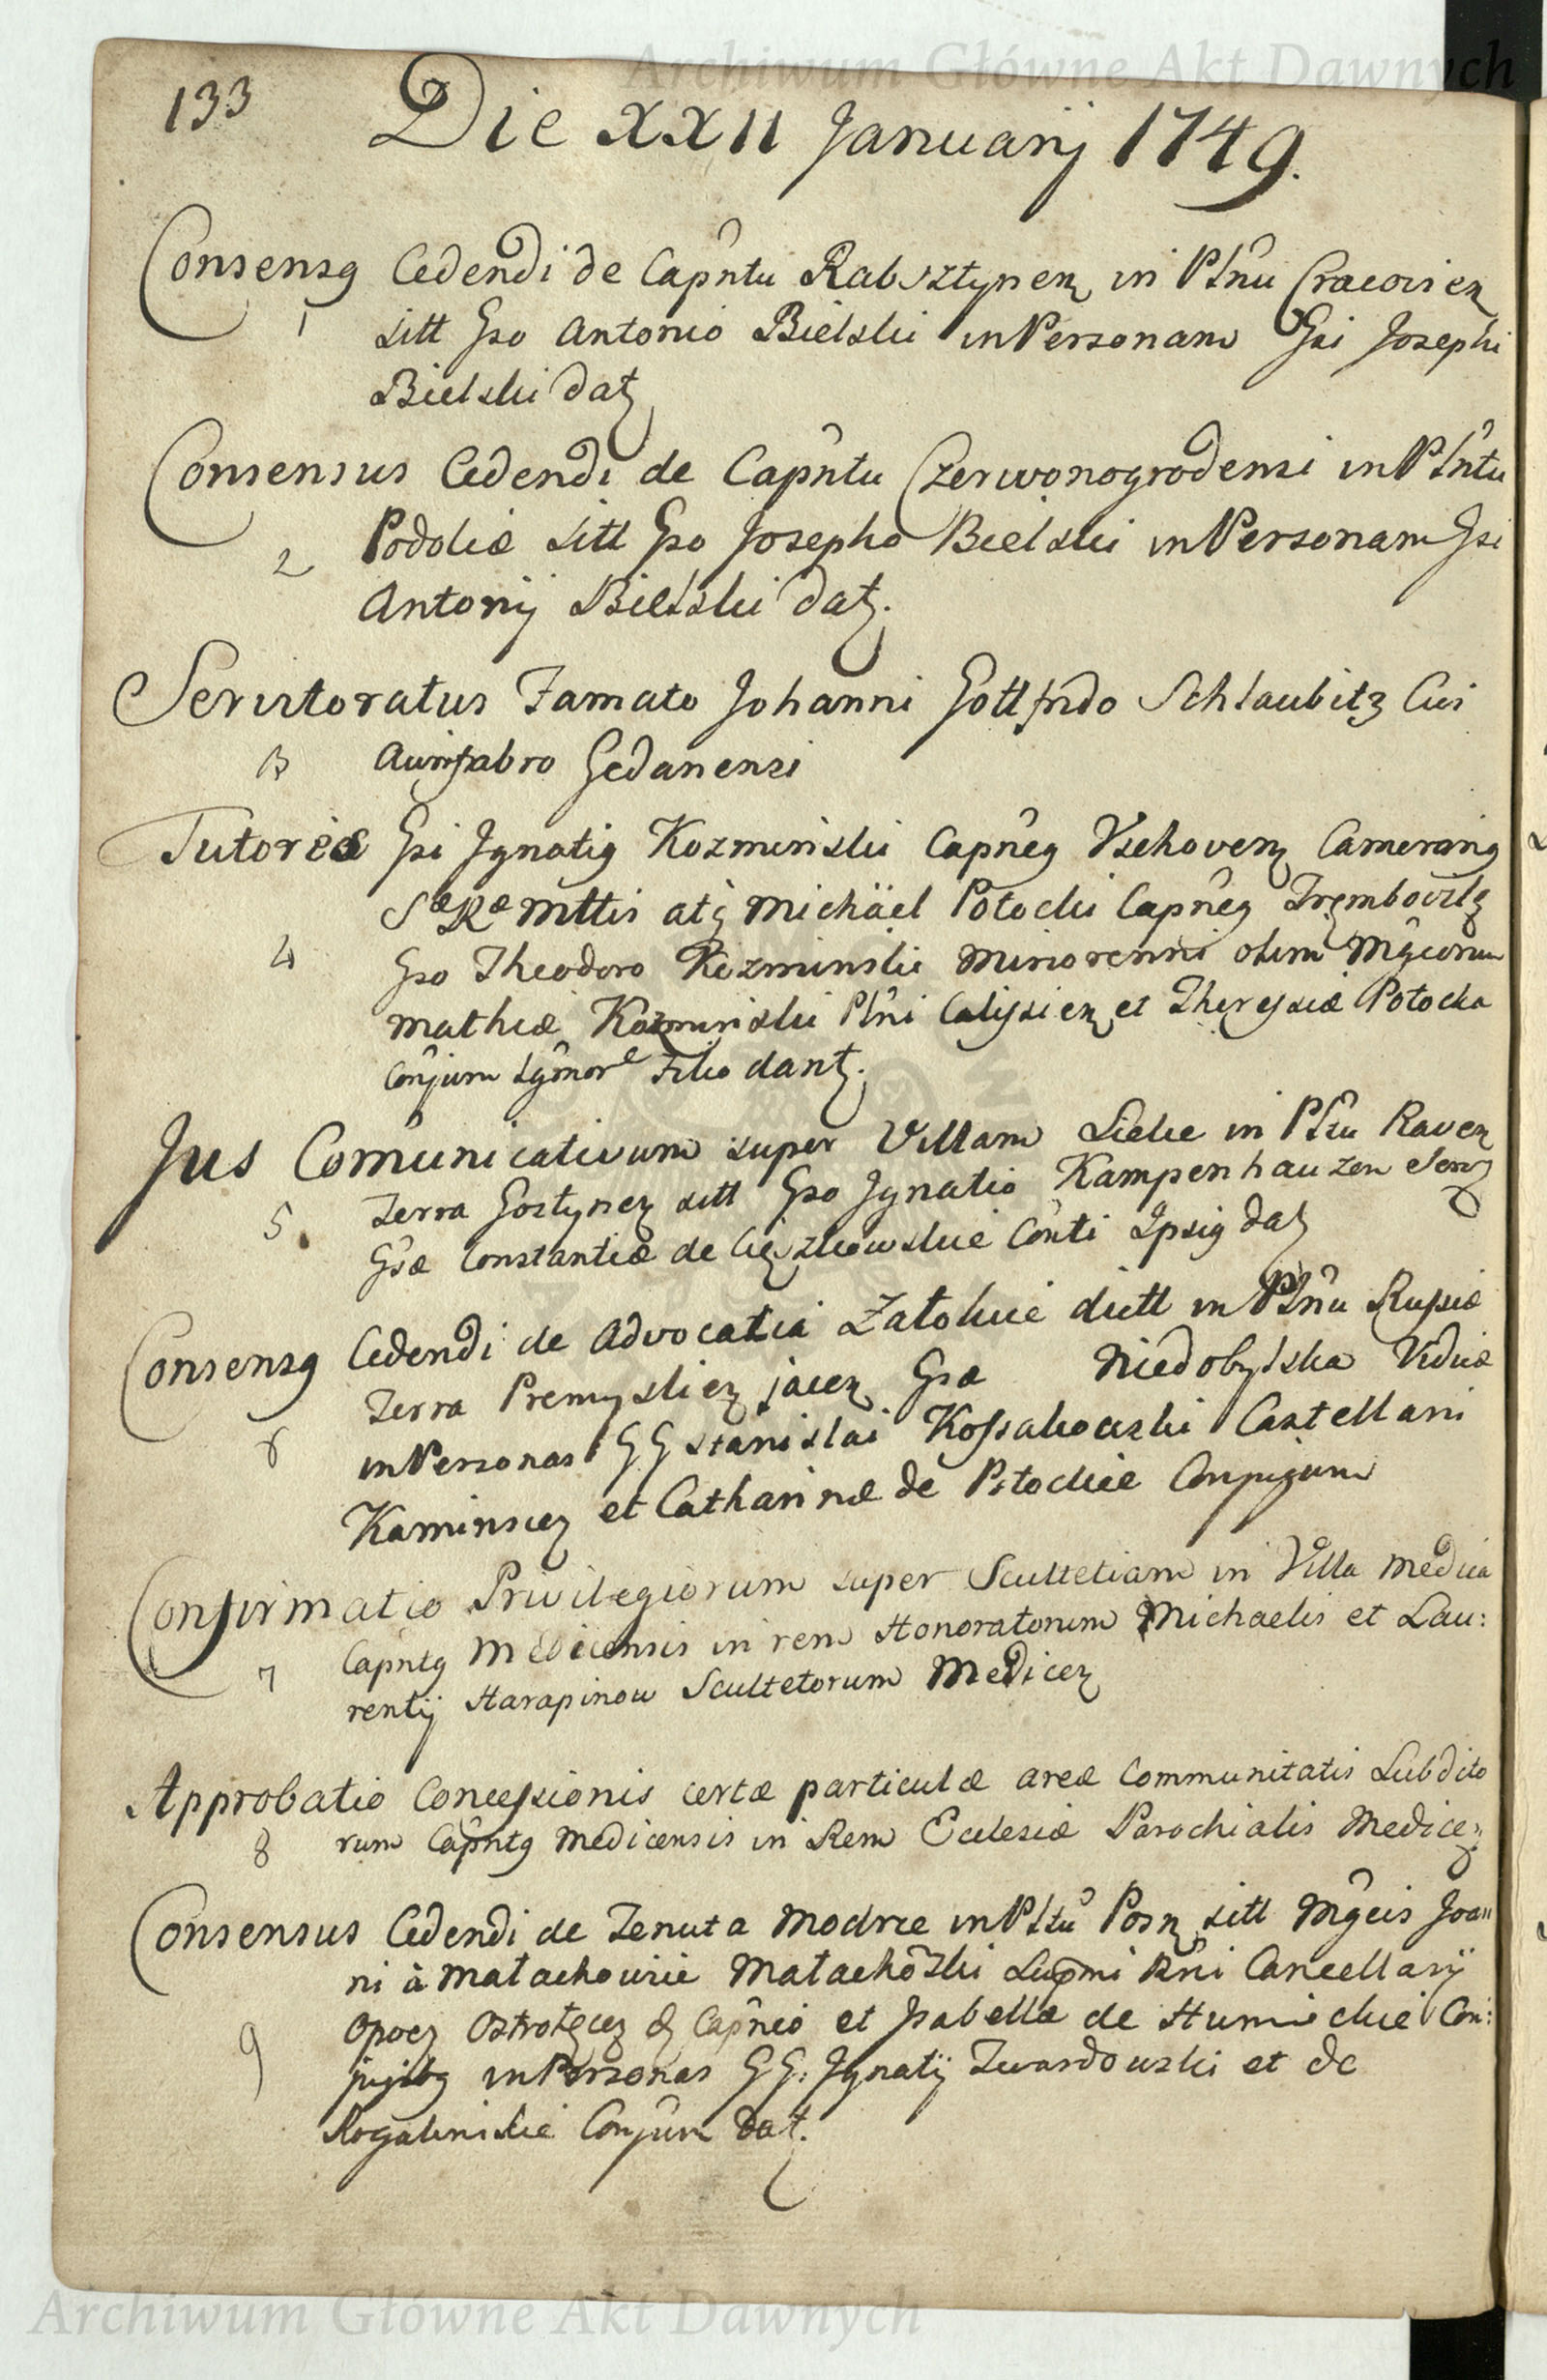 Archiwum Główne Akt Dawnych
133
Die XXII Januarij 1749.
Consensꝯ Cedendi de Capntu Rabsztynen in Pltnu Cracovien
1
sitt Gso Antonio Bielski in Personam Gsi Josephi
Bielski dat
Consensus Cedendi de Capntu Czerwonogrodensi in Pltntu
2
Podoliæ sitt Gso Josepho Bielski in Personam Gsi
Antonij Bielski dat.
Servitoratus Famato Johanni Gottfrido Schlaubitz Civi
3
Aurifabro Gedanensi
Tutores Gsi Ignatiꝯ Kozminski Capneꝯ Vschoven Camerariꝯ
Sæ Ræ Mttis atq Michäel Potocki Capneꝯ Trembovlꝫ
4
Gso Theodoro Kozminski minorenni olim Mgcorum
Mathiæ Kozminski Pltni Calissien et Theressiæ Potocka
Conjum Lgmor Filio dant.
Jus Comunicativum super Villam Sieke in Pltu Raven
5.
Terra Gostynen sitt Gso Ignatio Kampenhauzen
Gsæ Constantiæ de Cieszkowskie Conti Ipsiꝯ dat
Consensꝯ Cedendi de Advocatia Zatokie dictt in Pltnu Russiæ
6
Terra Premyslien jacen Gsæ Niedobylska Viduæ
in Personas GG Stanislai Kossakowski Castellani
Kaminscen et Catharinæ de Potockie Conjugum
Confirmatio Privilegiorum super Scultetiam in Villa Medica
7
Capntꝯ Medicensis in rem Honoratorum Michaelis et Lau:
rentij Harapinow Scultetorum Medicen
Approbatio Concessionis certæ particulæ areæ Communitatis Subdito
8
rum Capntꝯ Medicensis in Rem Ecclesiæ Parochialis Medicen
Consensus Cedendi de Tenuta Modrze in Pltu Posn sitt Mgcis Joan
ni à Matachowie Matachoski Supmi Rni Cancellarij
9
Opocz Ostrołęcen & Capneo et Isabellæ de Humieckie Con:
jugibꝯ in Personas GG: Ignatij Twardowski et de
Rogalinskie Conjum dat.
Archiwum Główne Akt Dawnych